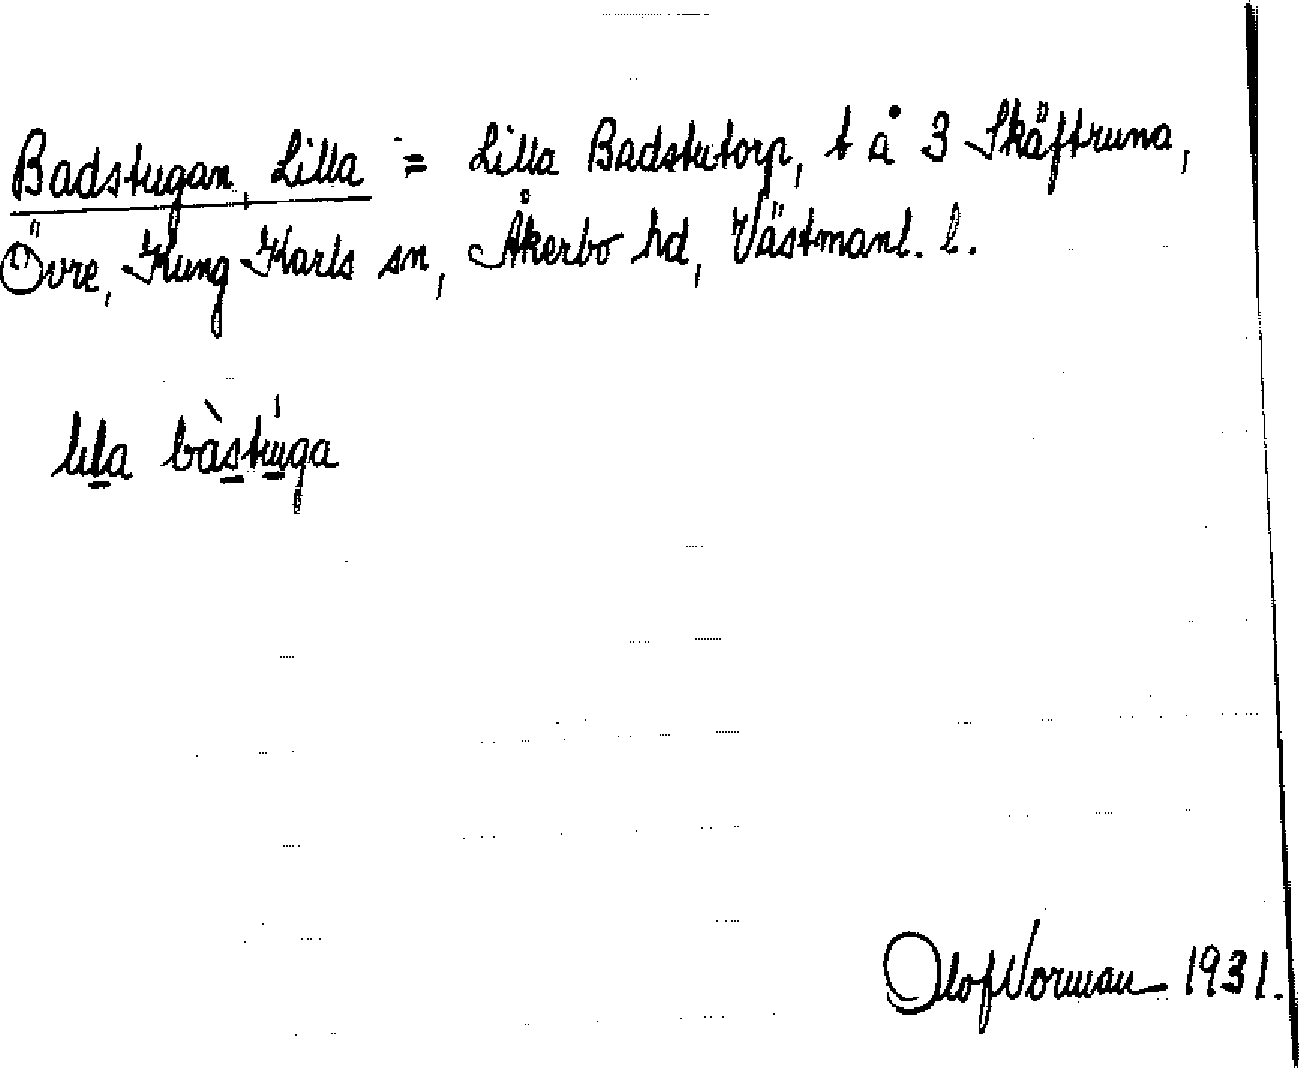 Badstugan, Lilla = Lilla Badstutorp, t å 3 Skäftruna,
Övre, Kung Karls sn, Åkerbo hd, Västmanl. l.
lila bàstúga
Olof Norman 1931.